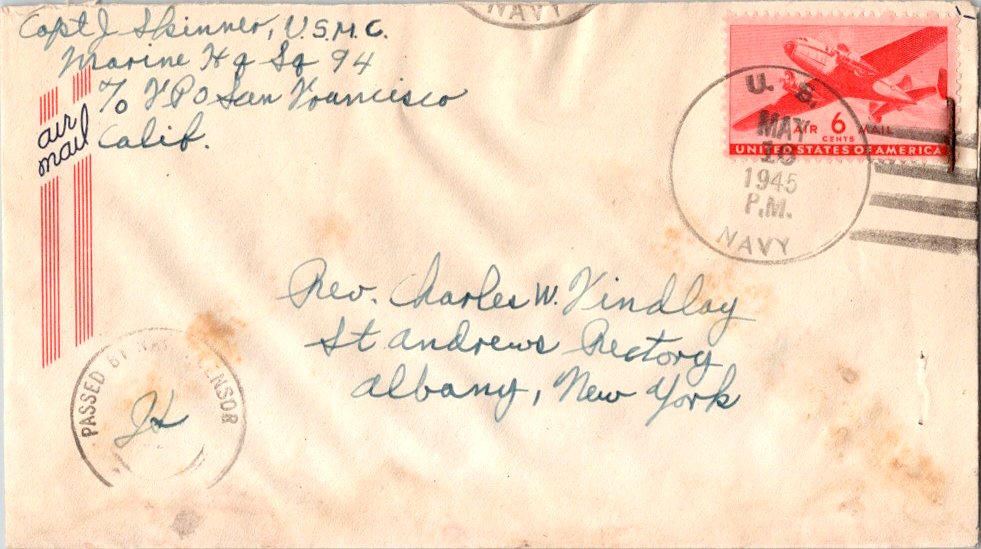 Capt J Skinner, U.S.M.C.
Marine Hq Sq 94
c/o FPO San Francisco
Calif.
air
mail
NAVY
U. S.
MAY
18
1945
P.M.
NAVY
AIR 6 MAIL
CENTS
UNITED STATES OF AMERICA
Rev. Charles W. Findlay
St Andrews Rectory
Albany, New York
PASSED BY CENSOR